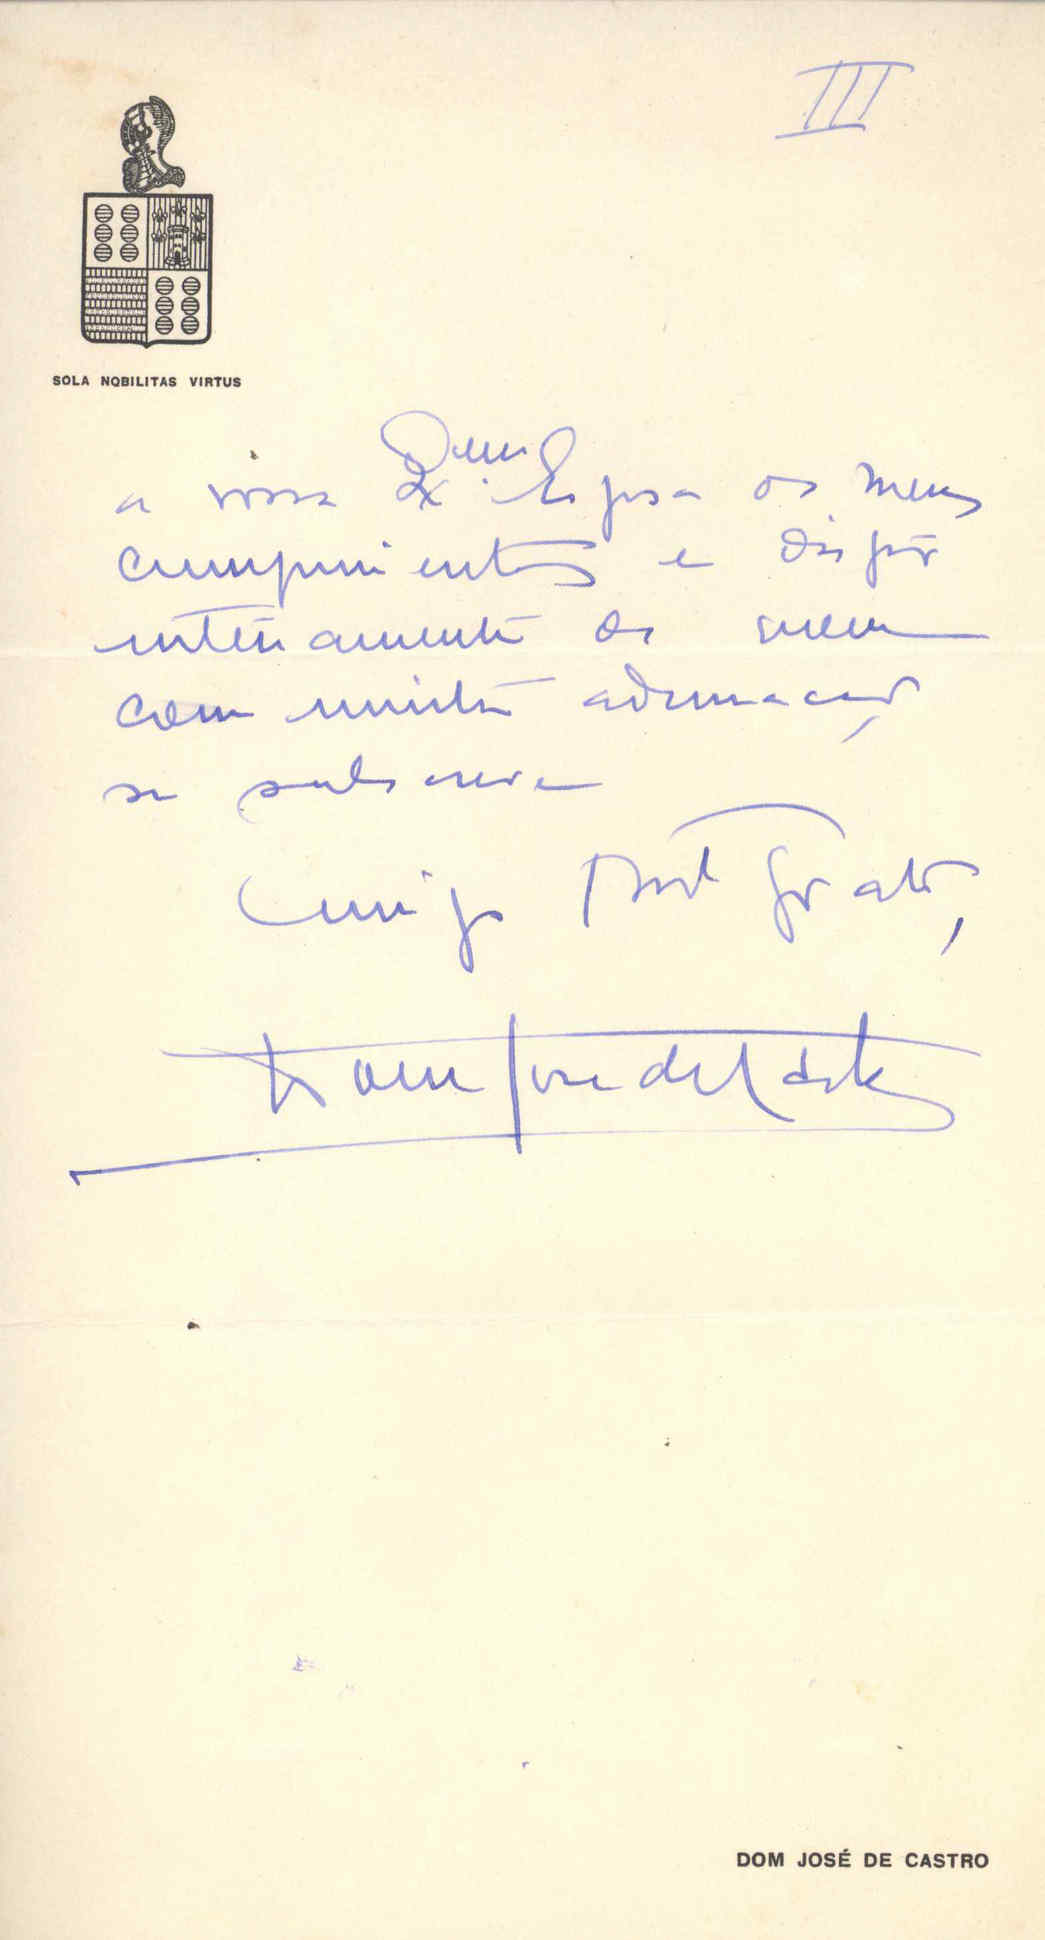 III
SOLA NOBILITAS VIRTUS
a vossa Exma Esposa os meus
cumprimentos e dispôr
inteiramente de quem
com muita admiração
se subscreve
Amigo Mto Grato,
Dom José de Castro
DOM JOSÉ DE CASTRO